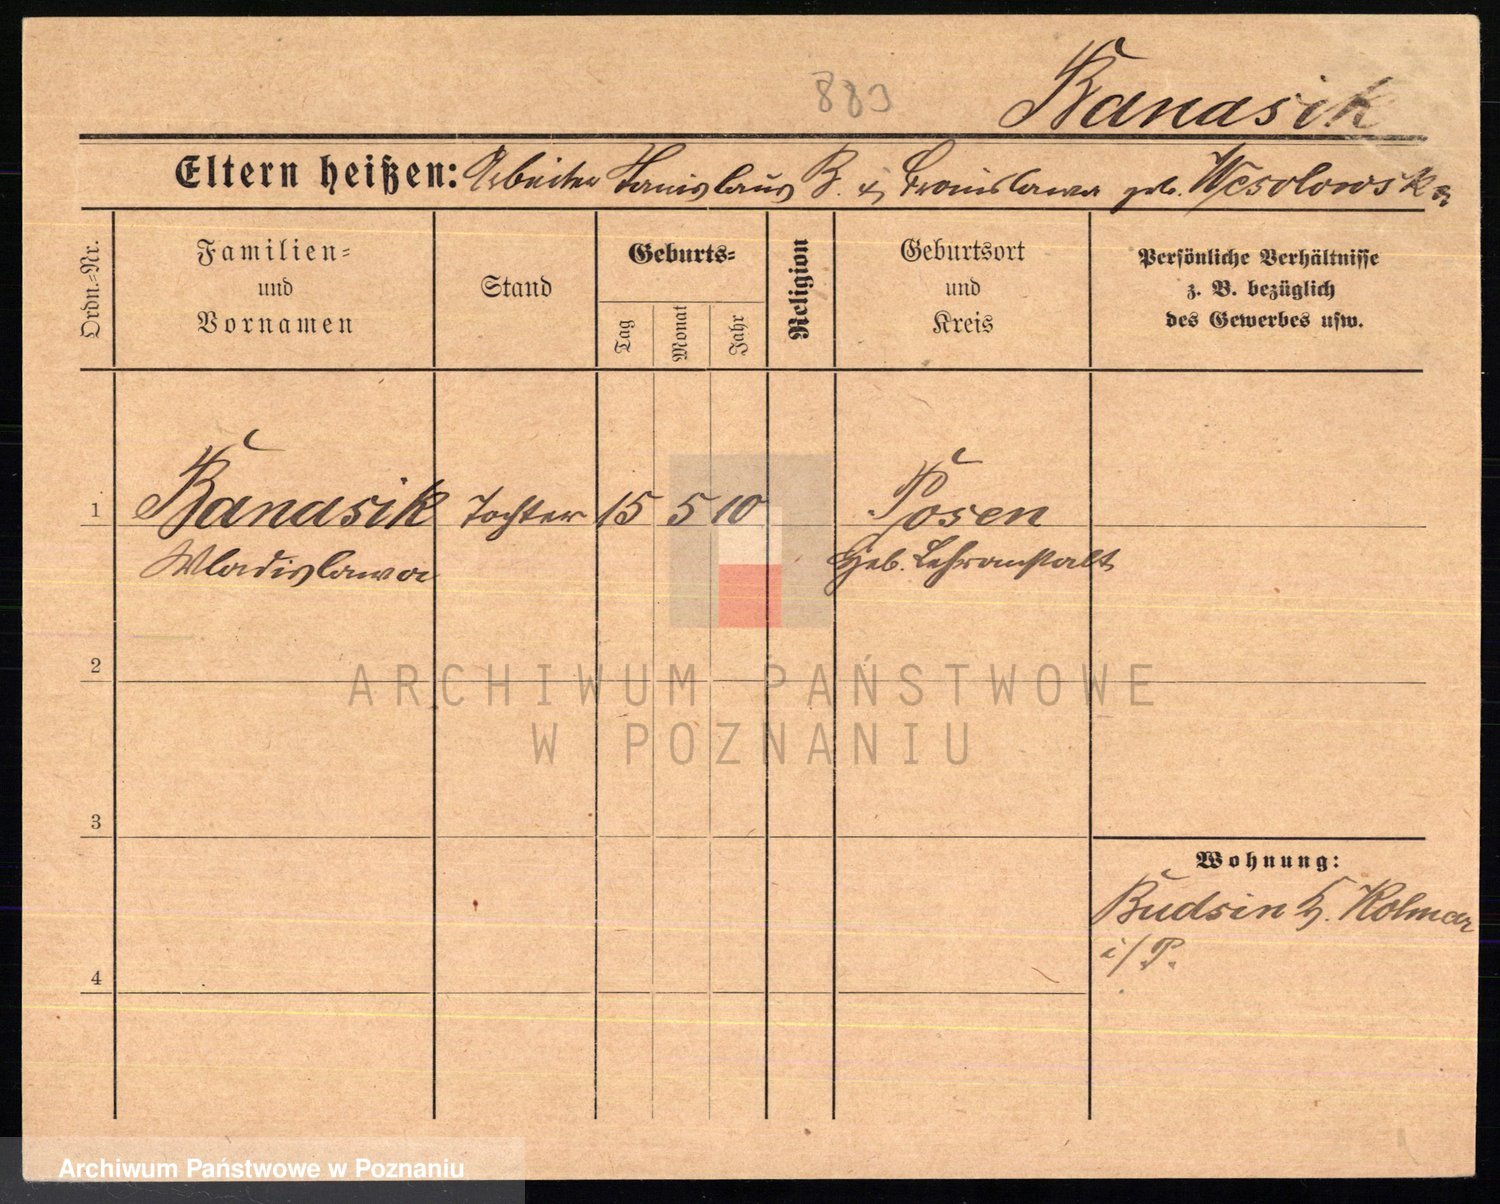 883
Banasik
Eltern heißen: Arbeiter Stanislaus B. u. Bronislawa geb. Wesolowska
Ordn.-Nr.
Familien-
und
Vornamen
Stand
Geburts-
Tag
Monat
Jahr
Religion
Geburtsort
und
Kreis
Persönliche Verhältnisse
z. B. bezüglich
des Gewerbes usw.
1 Banasik Tochter 15 5 10 Posen
Wladislawa Heb. Lehranstalt
2
3
Wohnung:
Budsin K. Kolmar
i/P.
4
ARCHIWUM PAŃSTWOWE
W POZNANIU
Archiwum Państwowe w Poznaniu